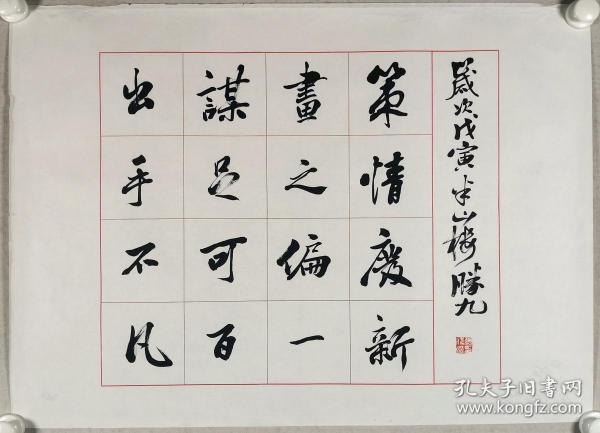 歲次戊寅半山樓勝九
策情廢新
畫之偏一
謀足可百
出手不凡
孔夫子旧书网
www.kongfz.com